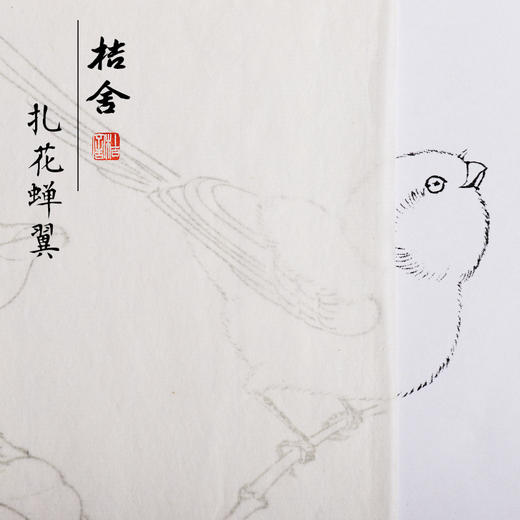 桔舍
扎花蝉翼